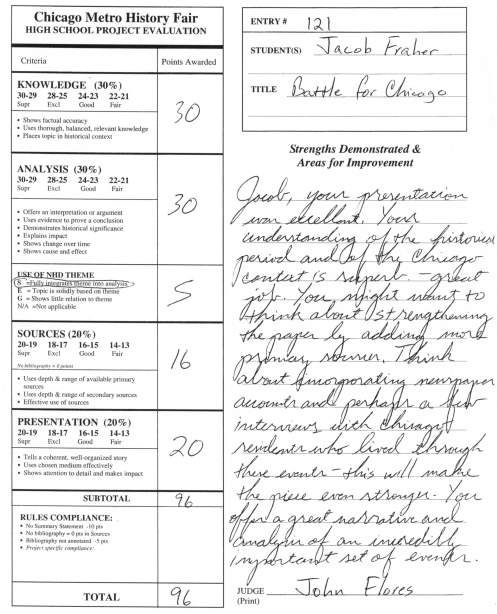 Chicago Metro History Fair
HIGH SCHOOL PROJECT EVALUATION
Criteria Points Awarded
KNOWLEDGE (30%)
30-29 28-25 24-23 22-21
Supr Excl Good Fair
• Shows factual accuracy
• Uses thorough, balanced, relevant knowledge
• Places topic in historical context
30
ANALYSIS (30%)
30-29 28-25 24-23 22-21
Supr Excl Good Fair
• Offers an interpretation or argument
• Uses evidence to prove a conclusion
• Demonstrates historical significance
• Explains impact
• Shows change over time
• Shows cause and effect
30
USE OF NHD THEME
S =Fully integrates theme into analysis
E = Topic is solidly based on theme
G = Shows little relation to theme
N/A =Not applicable
S
SOURCES (20%)
20-19 18-17 16-15 14-13
Supr Excl Good Fair
No bibliography = 0 points
• Uses depth & range of available primary
sources
• Uses depth & range of secondary sources
• Effective use of sources
16
PRESENTATION (20%)
20-19 18-17 16-15 14-13
Supr Excl Good Fair
• Tells a coherent, well-organized story
• Uses chosen medium effectively
• Shows attention to detail and makes impact
20
SUBTOTAL 96
RULES COMPLIANCE:
• No Summary Statement -10 pts
• No bibliography = 0 pts in Sources
• Bibliography not annotated -5 pts
• Project specific compliance:
TOTAL 96
ENTRY # 121
STUDENT(S) Jacob Fraher
TITLE Battle for Chicago
Strengths Demonstrated &
Areas for Improvement
Jacob, your presentation
was excellent. Your
understanding of the historical
period and of the Chicago
context is superb - great
job. You might want to
think about strengthening
the paper by adding more
primary sources. Think
about incorporating newspaper
accounts and perhaps a few
interviews with Chicago
residents who lived through
these events - this will make
the piece even stronger. You
offer a great narrative and
analysis of an incredibly
important set of events.
JUDGE John Flores
(Print)